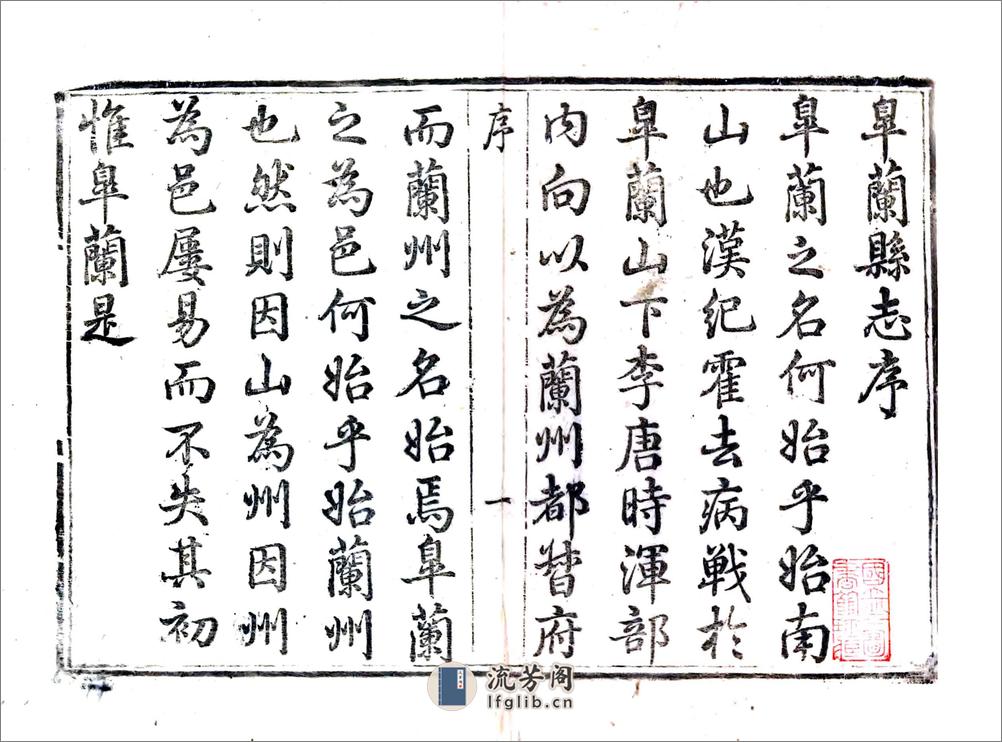 皐蘭縣志序
皐蘭之名何始乎始南
山也漢紀霍去病戰於
皐蘭山下李唐時渾部
内向以為蘭州都督府
序
一
而蘭州之名始焉皐蘭
之為邑何始乎始蘭州
也然則因山為州因州
為邑屢易而不失其初
惟皐蘭是
流芳阁
lfglib.cn